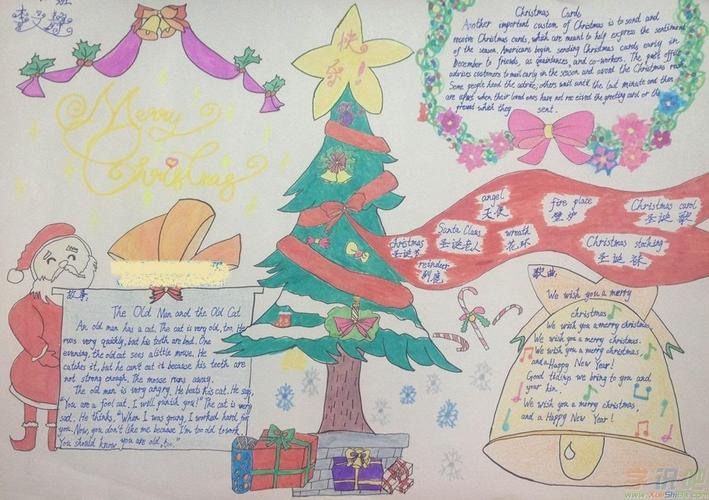 班
快
乐!
Merry
Christmas
Christmas Cards
Another important custom of Christmas is to send and
receive Christmas cards, which are meant to help express the sentiment
of the season. Americans begin sending Christmas cards early in
December to friends, acquaintances, and co-workers. The post office
advises customers to mail early in the season and avoid the Christmas rush.
Some people heed the advice; others wait until the last minute and then
are upset when their loved ones have not received the greeting card or the
present which they sent.
angel
天使
fire place
壁炉
Christmas carol
圣诞歌
Santa Claus
圣诞老人
wreath
花环
Christmas stocking
圣诞袜
christmas
圣诞节
reindeer
驯鹿
故事:
The Old Man and the Old Cat
An old man has a cat. The cat is very old, too. He
runs very quickly, but his teeth are bad. One
evening, the old cat sees a little mouse. He
catches it, but he can't eat it because his teeth are
not strong enough. The mouse runs away.
The old man is very angry. He beats his cat. He says,
"You are a fool cat, I will punish you!" The cat is very
sad. He thinks, "When I was young, I worked hard for
you. Now you don't like me because I'm too old to work.
You should know you are old, too."
歌曲:
We wish you a merry
christmas
We wish you a merry christmas,
We wish you a merry christmas
and a Happy New Year!
Good tidings we bring to you and
your kin.
We wish you a merry christmas,
and a Happy New Year!
学识网
www.XueShiBa.com